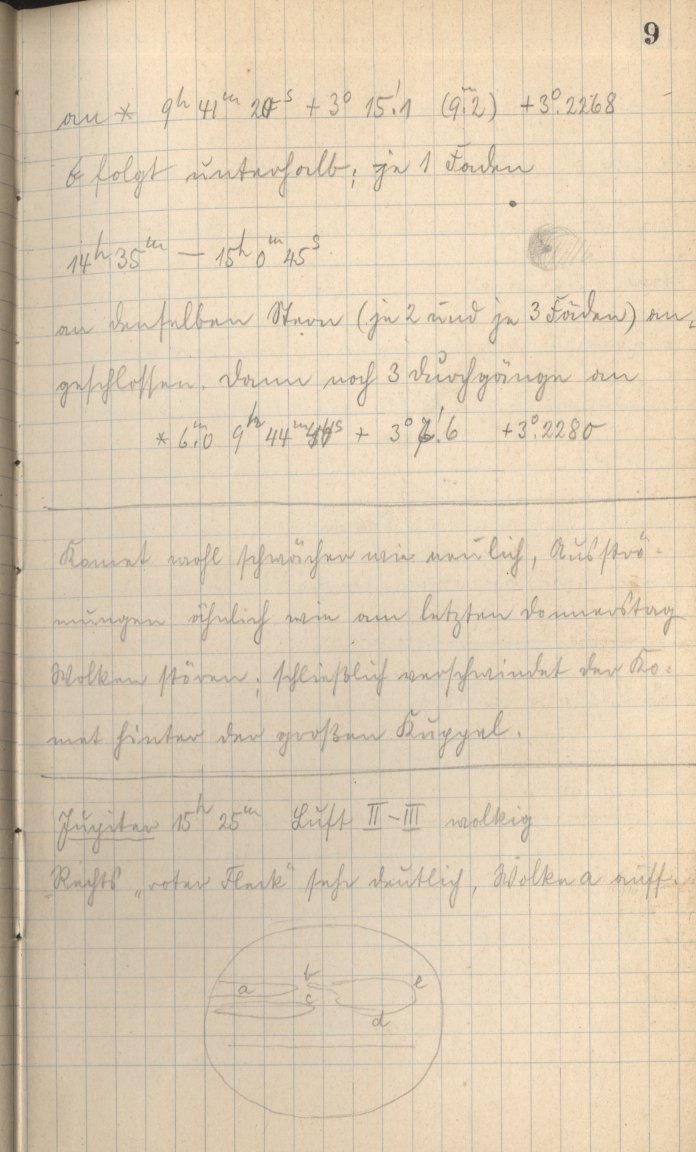 9
an * 9h 41m 20s + 3° 15'.1 (9m.2) +3°.2268
folgt unterhalb; je 1 Faden
14h 35m — 15h 0m 45s
an denselben Stern (je 2 und je 3 Fäden) an-
geschlossen. Dann noch 3 Durchgänge an
* 6m.0 9h 44m + 3° 6'.6 +3°.2280
Komet wohl schwächer wie neulich, Ausströ-
mungen ähnlich wie am letzten Donnerstag
Wolken stören; schließlich verschwindet der Ko-
met hinter der großen Kuppel.
Jupiter 15h 25m Luft II–III wolkig
Rechts „roter Fleck" sehr deutlich, Wolke a auff.
b
a c e
d